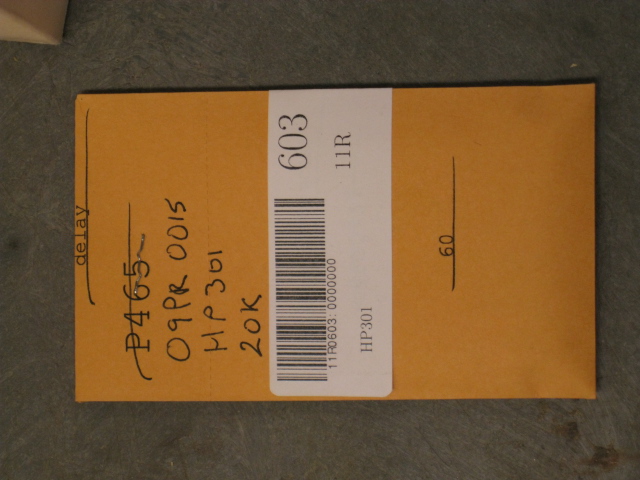 delay
P465
09PR 0015
HP301
20K
603
11R
11R0603:0000000
HP301
60